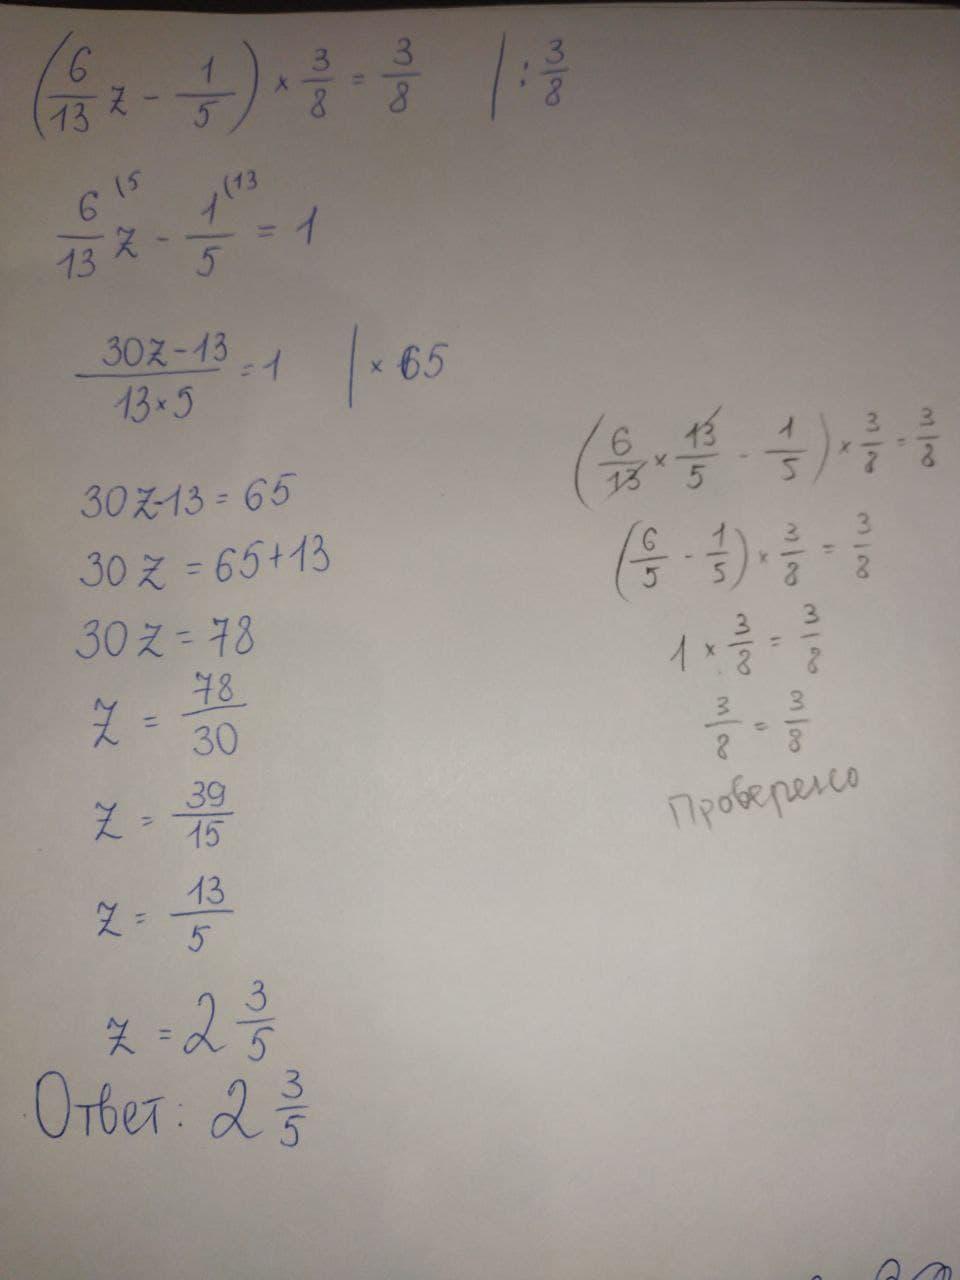 (6/13 z - 1/5) × 3/8 = 3/8 | : 3/8
6/13 \5 z - 1/5 (13 = 1
30z-13 / 13×5 = 1 | × 65
30z-13 = 65
30z = 65+13
30z = 78
z = 78/30
z = 39/15
z = 13/5
z = 2 3/5
Ответ: 2 3/5
(6/13 × 13/5 - 1/5) × 3/8 = 3/8
(6/5 - 1/5) × 3/8 = 3/8
1 × 3/8 = 3/8
3/8 = 3/8
Проверено